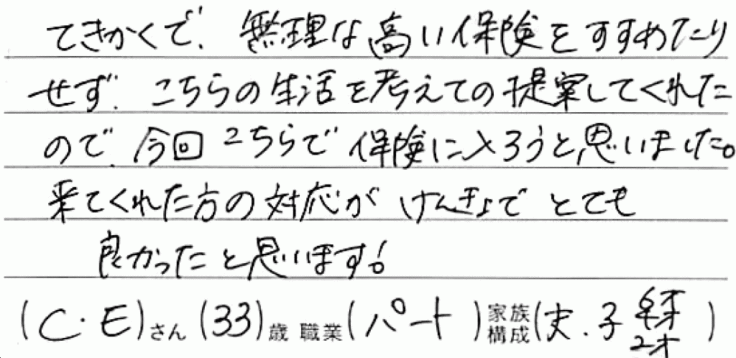 てきかくで、無理な高い保険をすすめたり
せず、こちらの生活を考えての提案してくれた
ので、今回こちらで保険に入ろうと思いました。
来てくれた方の対応がけんきょでとても
良かったと思います!
(C・E)さん(33)歳 職業(パート)家族構成(夫、子 2才)